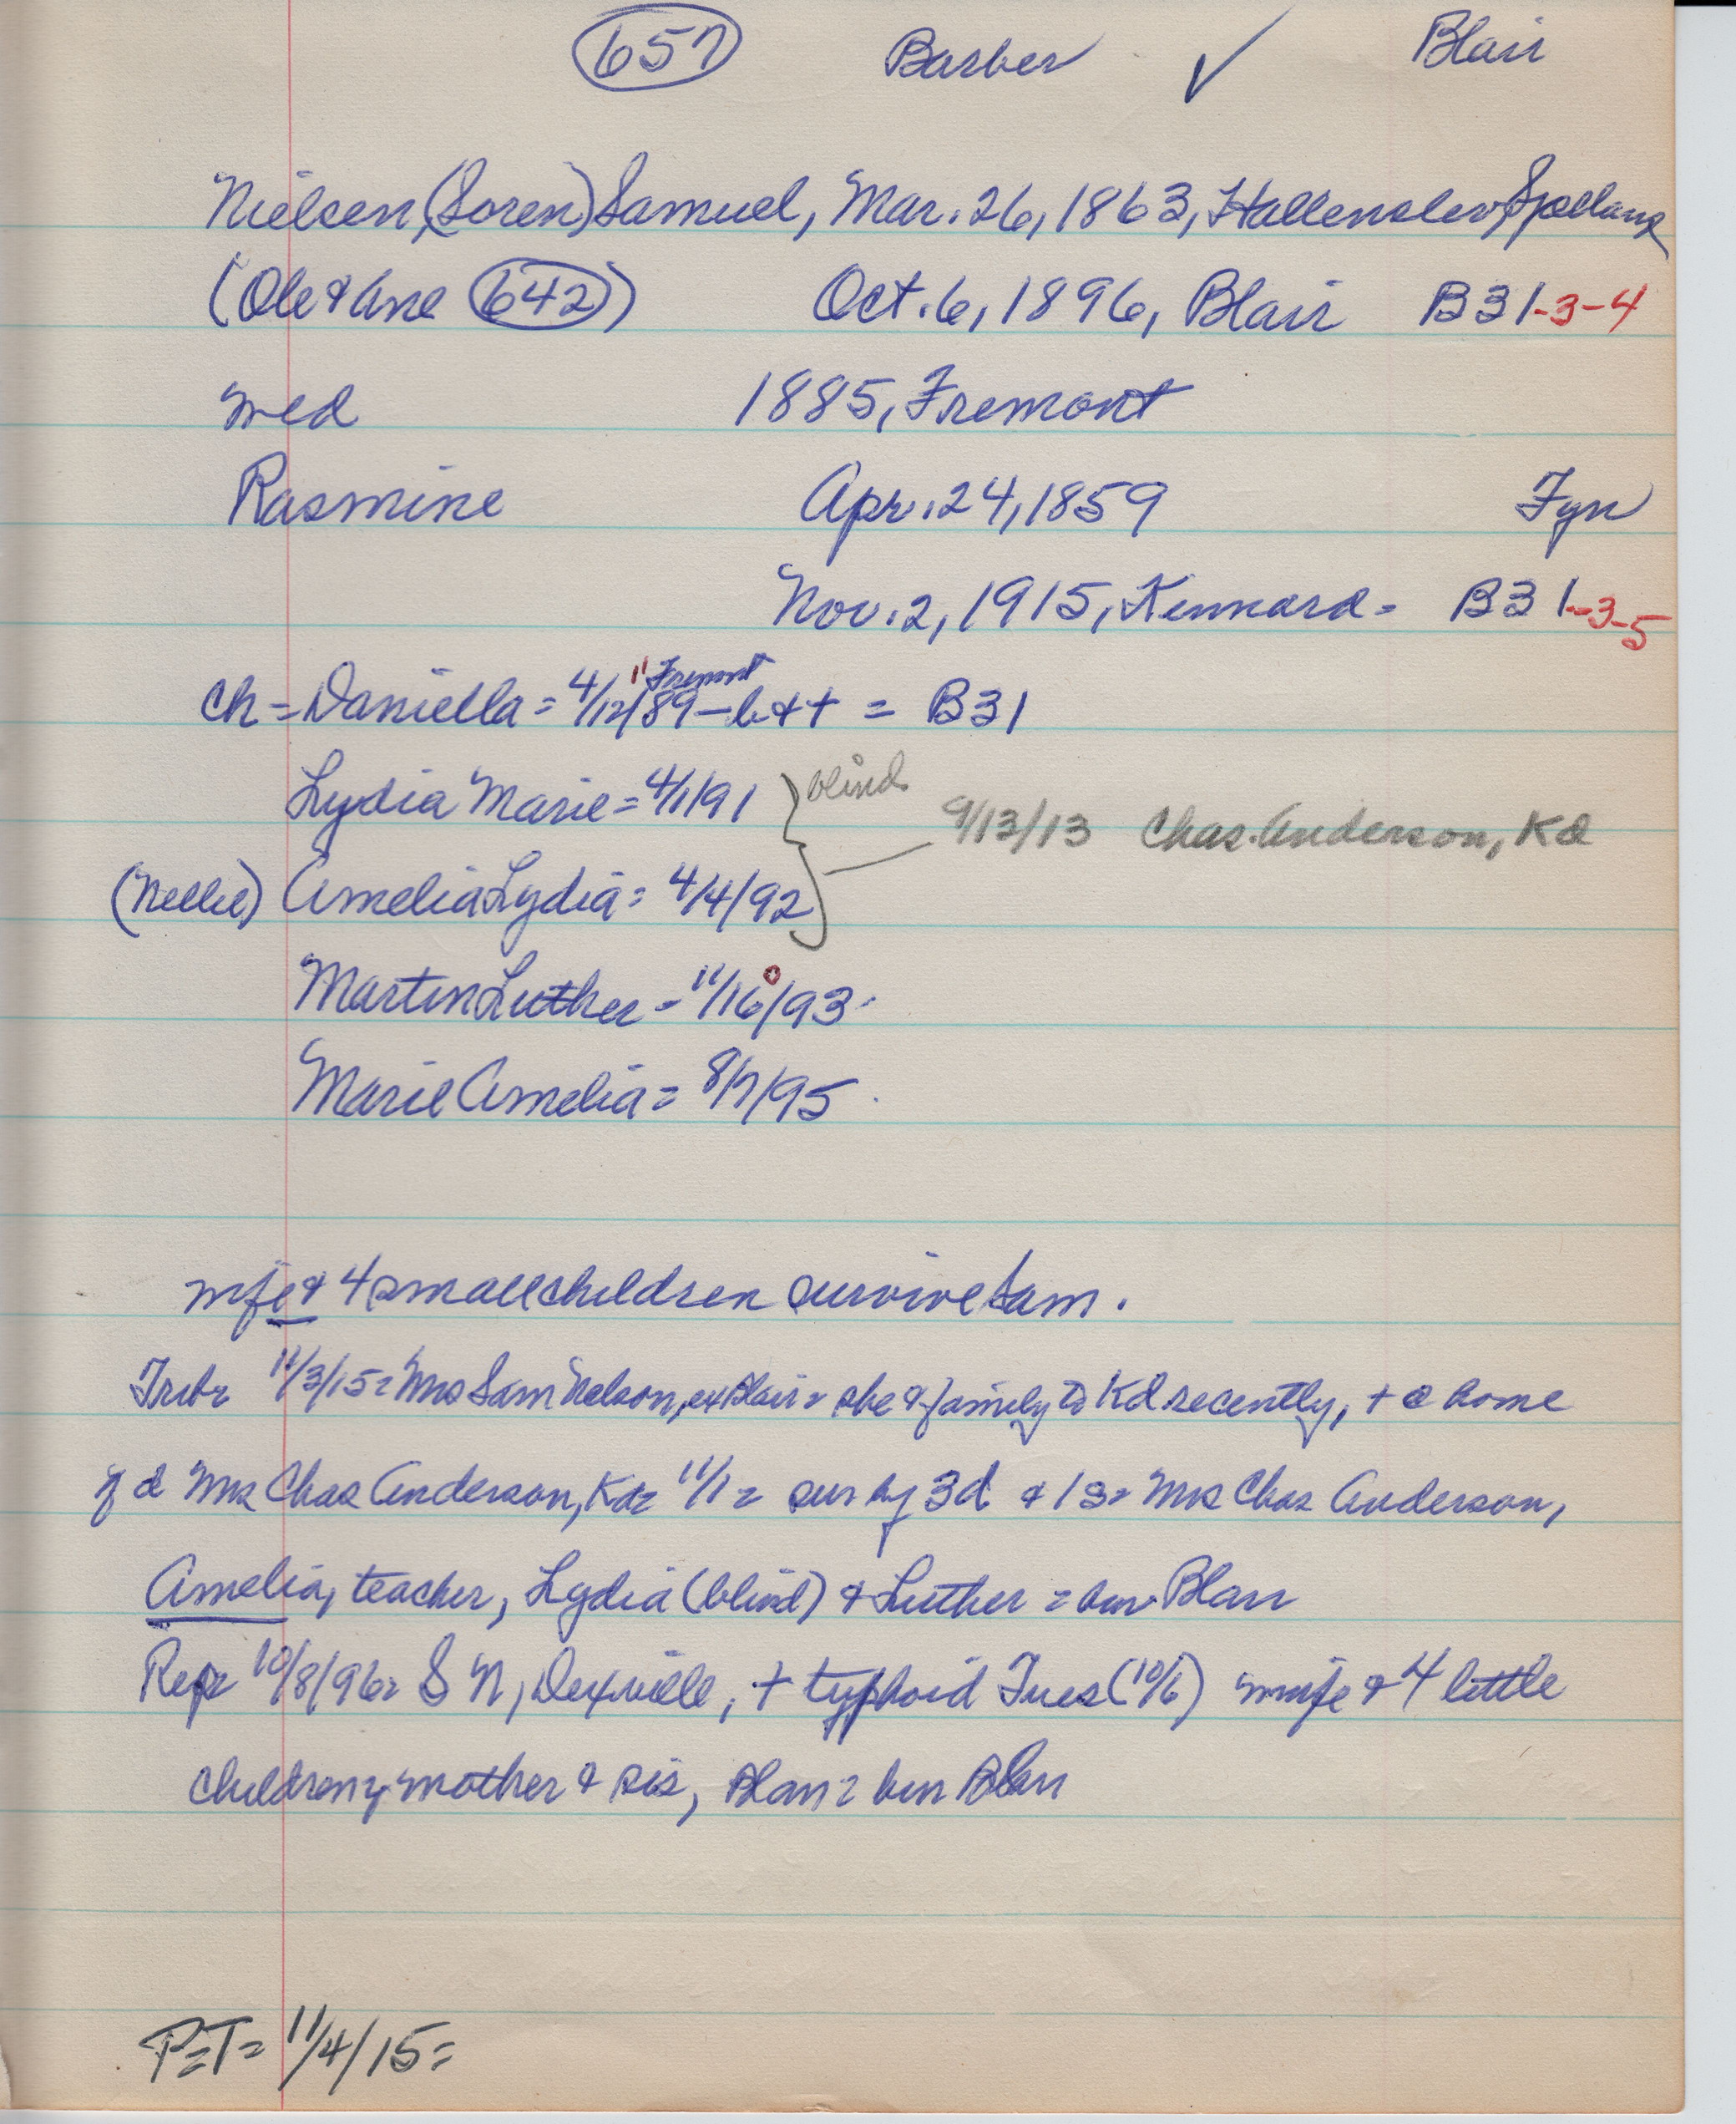 657 Barber ✓ Blair
Nielsen, (Soren) Samuel, Mar. 26, 1863, Hallenslev, Sjælland
(Ole & Ane 642) Oct. 6, 1896, Blair B31-3-4
med 1885, Fremont
Rasmine Apr. 24, 1859 Fyn
Nov. 2, 1915, Kennard = B31-3-5
Fremont
ch = Daniella = 4/12/89 - b & + = B31
Lydia Marie = 4/1/91 } blind
9/13/13 Chas. Anderson, Kd
(Nellie) Amelia Lydia = 4/4/92
Martin Luther = 11/16/93
Marie Amelia = 8/7/95
wife & 4 small children survive Sam.
Trib = 11/3/15 = Mrs Sam Nelson, ex Blair = she & family to Kd recently, + @ home
of d Mrs Chas Anderson, Kd = 11/1 = sur by 3d & 1s = Mrs Chas Anderson,
Amelia, teacher, Lydia (blind) & Luther = bur Blair
Rep = 10/8/96 = S N, , + typhoid Tues (10/6) wife & 4 little
children, mother & sis, Blair = bur Blair
P=T= 11/4/15 =